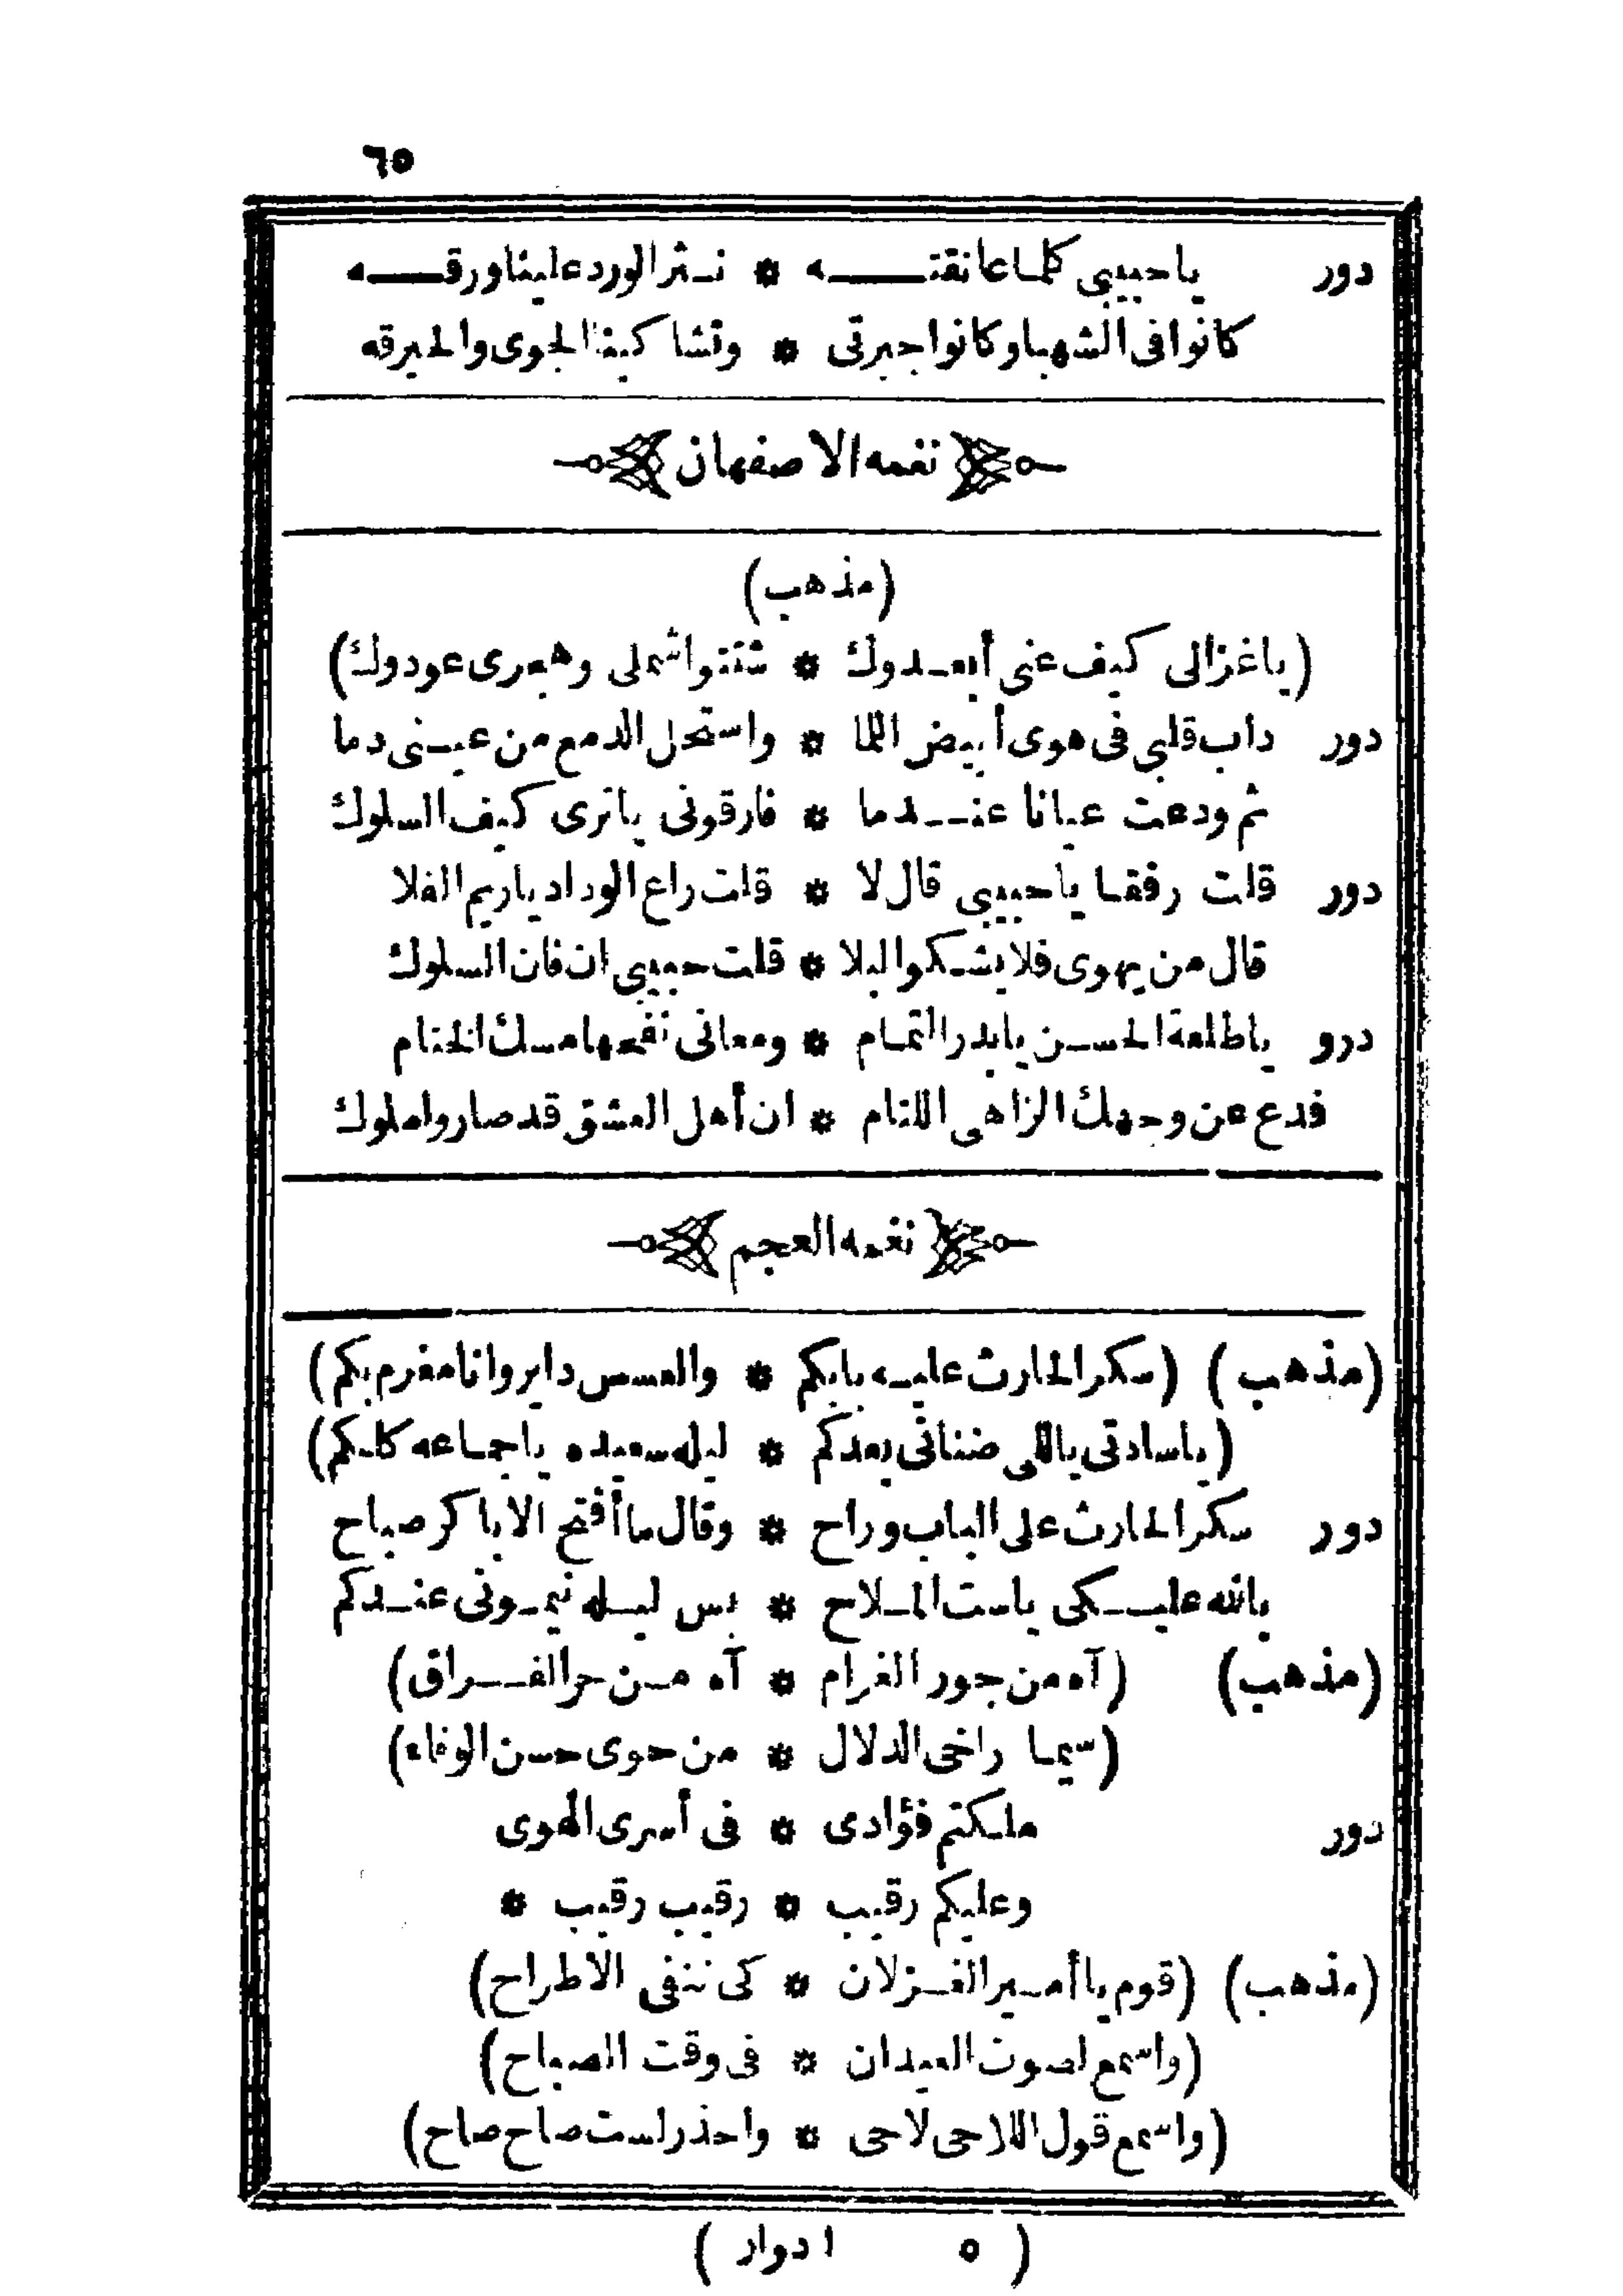 ٦٥
دور ياحبيبى كلما عانقته * نثر الورد علينا ورقه
كانوا فى الشهبا وكانوا جيرتى * وتشا كينا الجوى والحيرقه
نغمه الاصفهان
(مذهب)
(ياغزالى كيف عنى أبعدوك * شتتوا شملى وهجرى عودوك)
دور داب قلبى فى هوى أبيض اللما * واستحل الدمع من عينى دما
ثم ودعت عيانا عندما * فارقونى ياترى كيف السلوك
دور قلت رفقا ياحبيبى قال لا * قلت راع الوداد ياريم الفلا
قال من يهوى فلا يشكو البلا * قلت حبيبى ان فان السلوك
درو ياطلعة الحسن يابدر التمام * ومعانى نغمها مسك الختام
فدع عن وجهك الزاهى اللثام * ان أهل العشق قد صاروا ملوك
نغمه العجم
(مذهب) (سكر الحارث عليه بابكم * والعسس داير وانا مغرم بكم)
(ياسادتى ياللى ضنانى بعدكم * ليله سعيده ياجماعه كلكم)
دور سكر الحارث على الباب وراح * وقال ما أفتح الا باكر صباح
بالله عليكى ياست الملاح * بس ليله نيمونى عندكم
(مذهب) (آه من جور الغرام * آه من حر الفراق)
(سيما راخى الدلال * من حوى حسن الوفاء)
دور ملكتم فؤادى * فى أسرى الهوى
وعليكم رقيب * رقيب رقيب *
(مذهب) (قوم يا أمير الغزلان * كى ننفى الاطراح)
(واسمع لصوت العيدان * فى وقت الصباح)
(واسمع قول اللاحى لاحى * واحذر لست صاح صاح)
( ٥ ادوار )